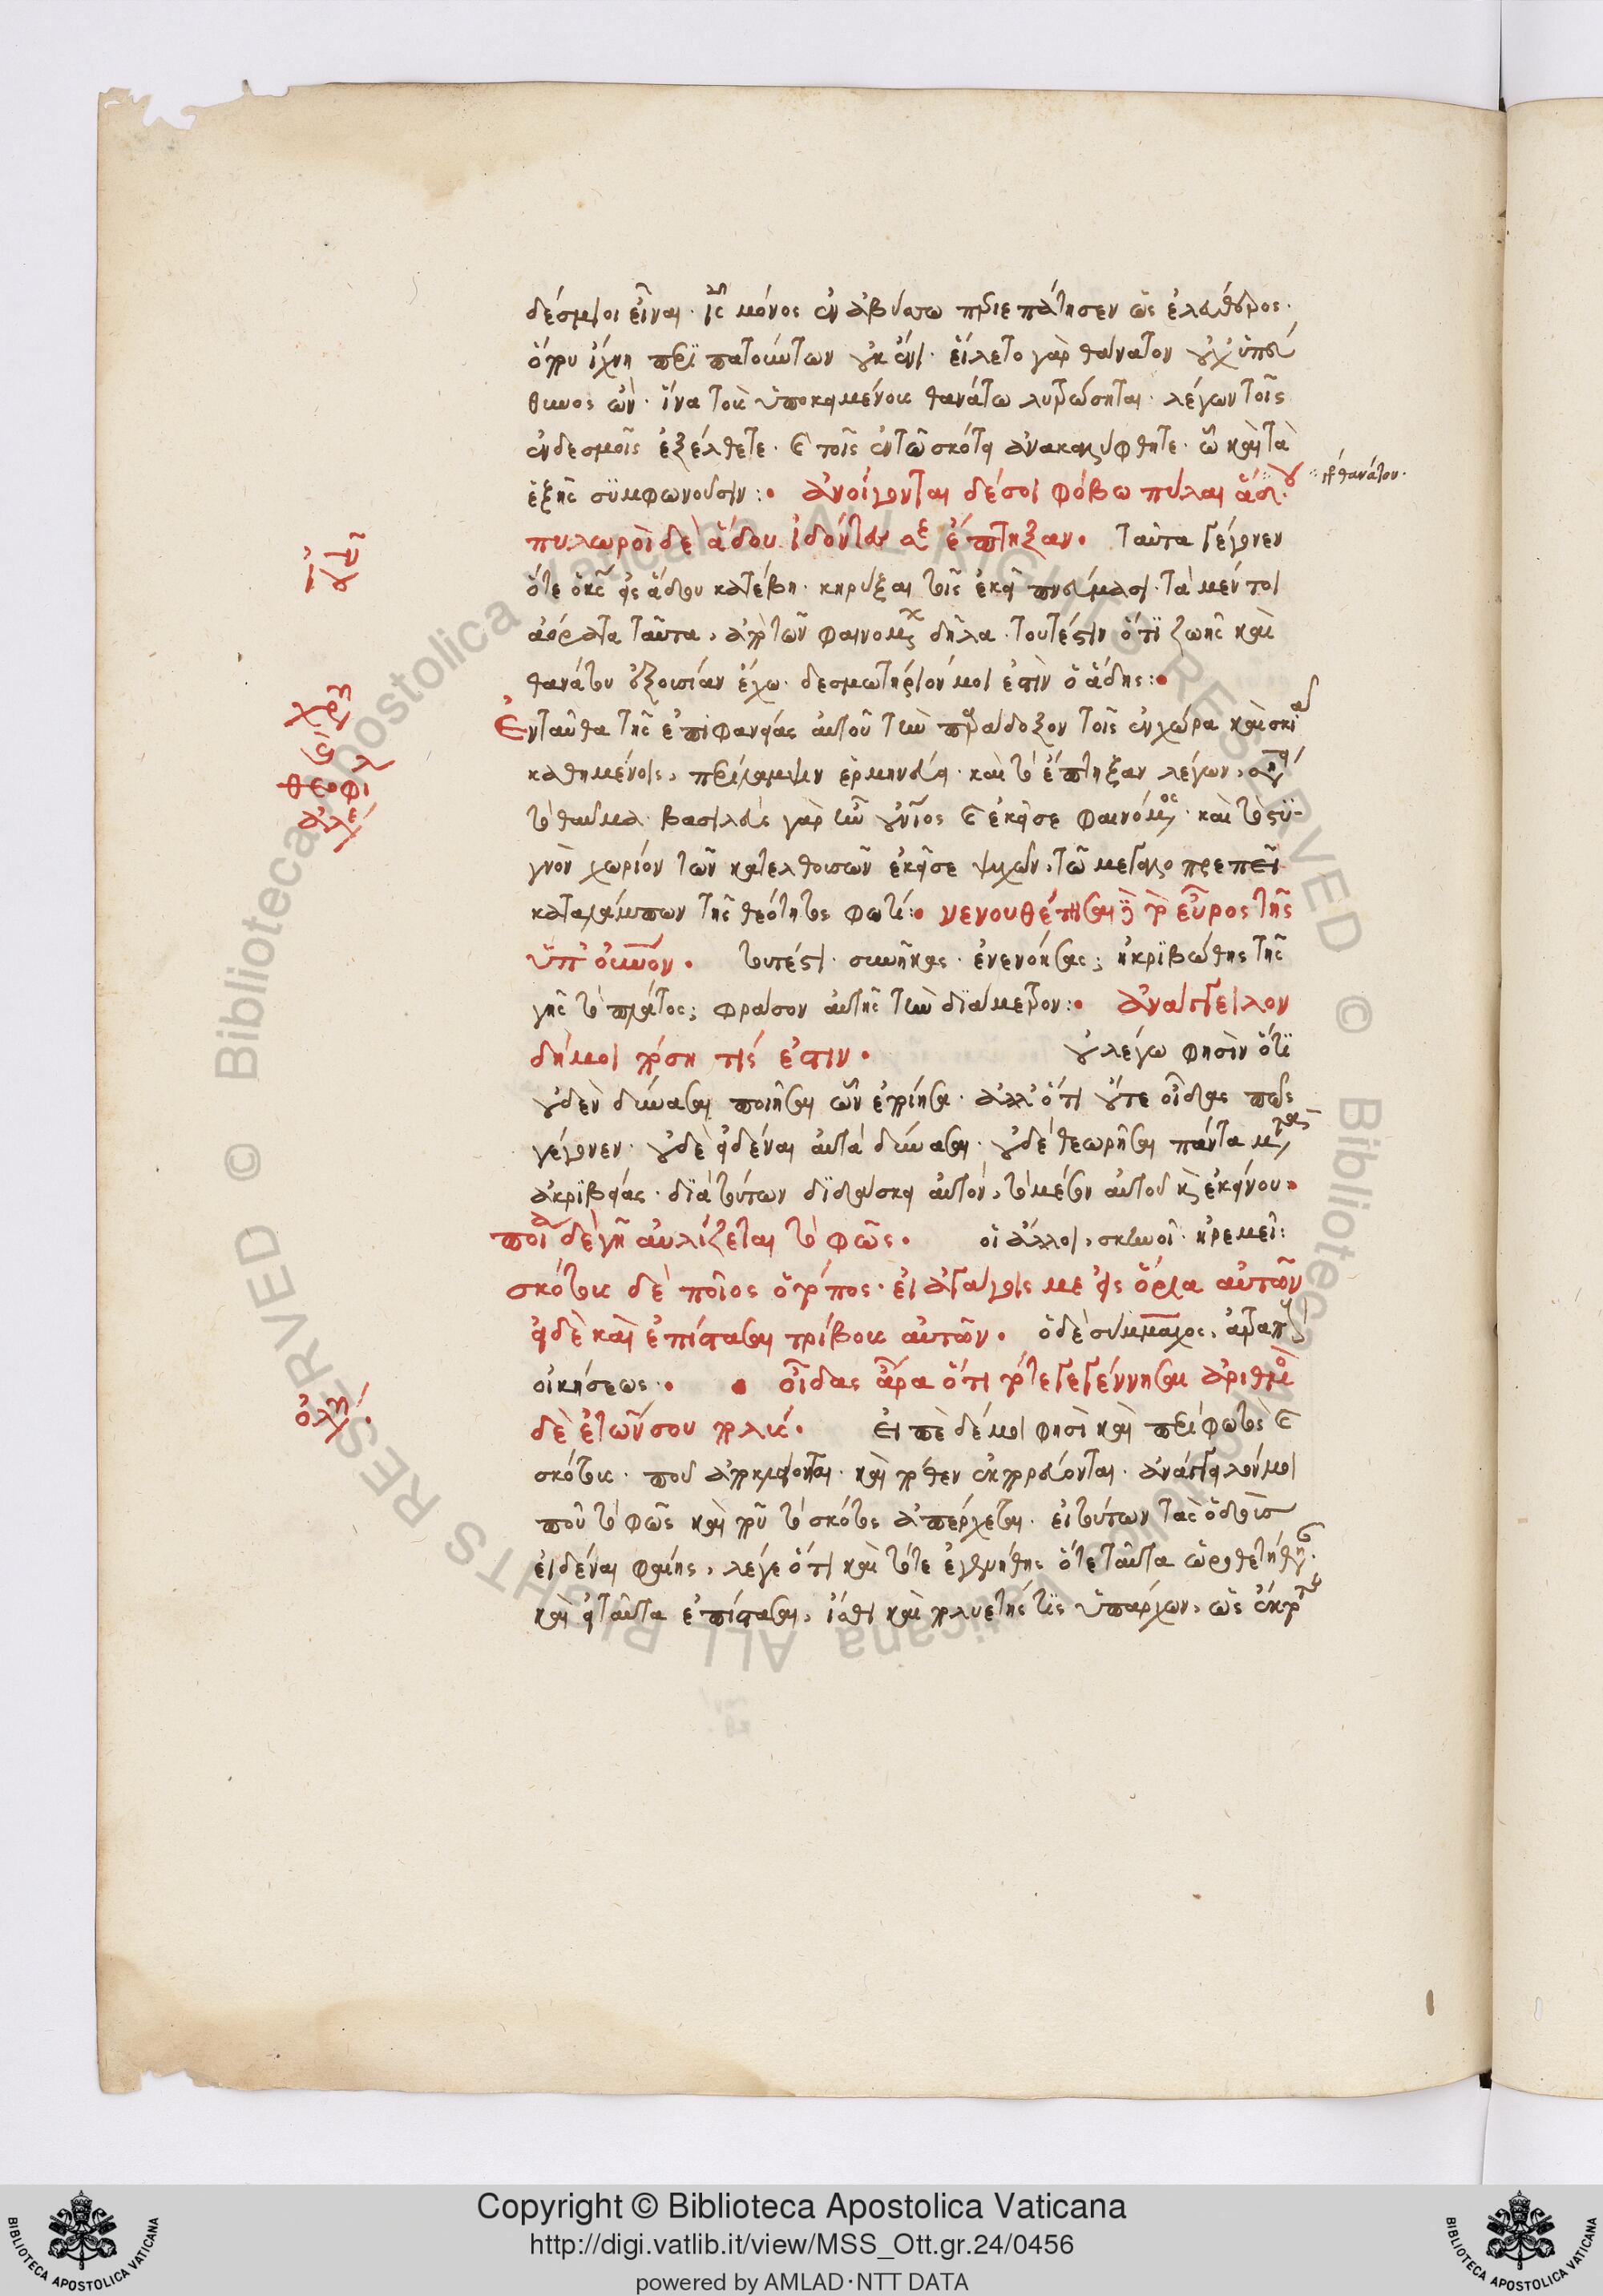 δέσμιοι εἶναι· ις μόνος ἐν ἀβύσσω περιεπάτησεν ὡς ἐλεύθερος·
ὅπου ἴχνη περιπατούντων οὐκ ἔνι· εἵλετο γὰρ θάνατον οὐχ ὑπεύ
θυνος ὤν· ἵνα τοὺς ὑποκειμένους θανάτω λυτρώσηται· λέγων τοῖς
ἐν δεσμοῖς ἐξέλθετε· καὶ τοῖς ἐν τῶ σκότει ἀνακαλύφθητε· ὧ καὶ τὰ
ἑξῆς συμφωνοῦσιν: ἀνοίγονταί δέ σοι φόβω πύλαι ἅδου·
θανάτου·
πυλωροὶ δὲ ἅδου ἰδόντες σε ἔπτηξαν· ταῦτα γέγονεν
ὅτε ὁ κς εἰς ἅδου κατέβη· κηρῦξαι τοῖς ἐκεῖ πνεύμασι· τὰ μέντοι
ἀόρατα ταῦτα, ἀπὸ τῶν φαινομένων δῆλα· τουτέστιν ὅτι ζωῆς καὶ
θανάτου ἐξουσίαν ἔχω· δεσμωτήριόν μοι ἐστὶν ὁ ἅδης:
Ἐνταῦθα τῆς ἐπιφανείας αὐτοῦ τὸ παράδοξον τοῖς ἐν χώρα καὶ σκιᾶ
καθημένοις, καὶ τὸ ἔπτηξαν λέγων,
τὸ θαῦμα· βασιλεὺς γὰρ ἦν οὐνιος καὶ ἐκεῖσε φαινόμενος· καὶ τὸ στυ-
γνὸν χωρίον τῶν κατελθουσῶν ἐκεῖσε ψυχῶν, τῶ μεγαλοπρεπεῖ
καταλάμπων τῆς θεότητος φωτί: νενουθέτησαι δὲ τὸ εὖρος τῆς
ὑπ' οὐνόν· τουτέστι· συνῆκας· ἐνενόησας; ἠκριβώθης τῆς
γῆς τὸ πλάτος; φράσον αὐτῆς τὴν διάμετρον: ἀνάγγειλον
δή μοι πόση τίς ἐστιν· οὐ λέγω φησὶν ὅτι
οὐδὲν δύνασαι ποιῆσαι ὧν ἐποίησα· ἀλλ' ὅτι οὔτε οἶδας πῶς
γέγονεν· οὐδὲ εἰδέναι αὐτὰ δύνασαι· οὐδὲ θεωρῆσαι πάντα μετὰ
ἀκριβείας· διὰ τούτων διδάσκει αὐτόν, τὸ μέσον αὐτοῦ καὶ ἐκείνου·
ποία δὲ γῆ αὐλίζεται τὸ φῶς· οἱ ἄλλοι, σκηνοῖ· ἠρεμεῖ:
σκότους δὲ ποῖος ὁ τόπος· εἰ ἀγάγοις με εἰς ὅρια αὐτῶν
εἰ δὲ καὶ ἐπίστασαι τρίβους αὐτῶν· ὁ δὲ σύμμαχος,
οἰκήσεως·· οἶδας ἄρα ὅτι τότε γεγέννησαι ἀριθμὸς
δὲ ἐτῶν σου πολύς· εἰπὲ δέ μοι φησὶ καὶ περὶ φωτὸς καὶ
σκότους· ποῦ ἀποκρύπτονται· καὶ πόθεν ἐκπορεύονται· ἀνάγγειλόν μοι
ποῦ τὸ φῶς καὶ ποῦ τὸ σκότος ἀπέρχεται· εἰ τούτων τὰς ὁδοὺς
εἰδέναι φαίης, λέγε ὅτι καὶ τότε ἐγεννήθης ὅτε ταῦτα ὡροθετήθη·
καὶ εἰ ταῦτα ἐπίστασαι, ἴσθι καὶ πολυετής τις ὑπάρχων, ὡς ἐκ
Copyright © Biblioteca Apostolica Vaticana
http://digi.vatlib.it/view/MSS_Ott.gr.24/0456
powered by AMLAD·NTT DATA
BIBLIOTECA APOSTOLICA VATICANA
BIBLIOTECA APOSTOLICA VATICANA